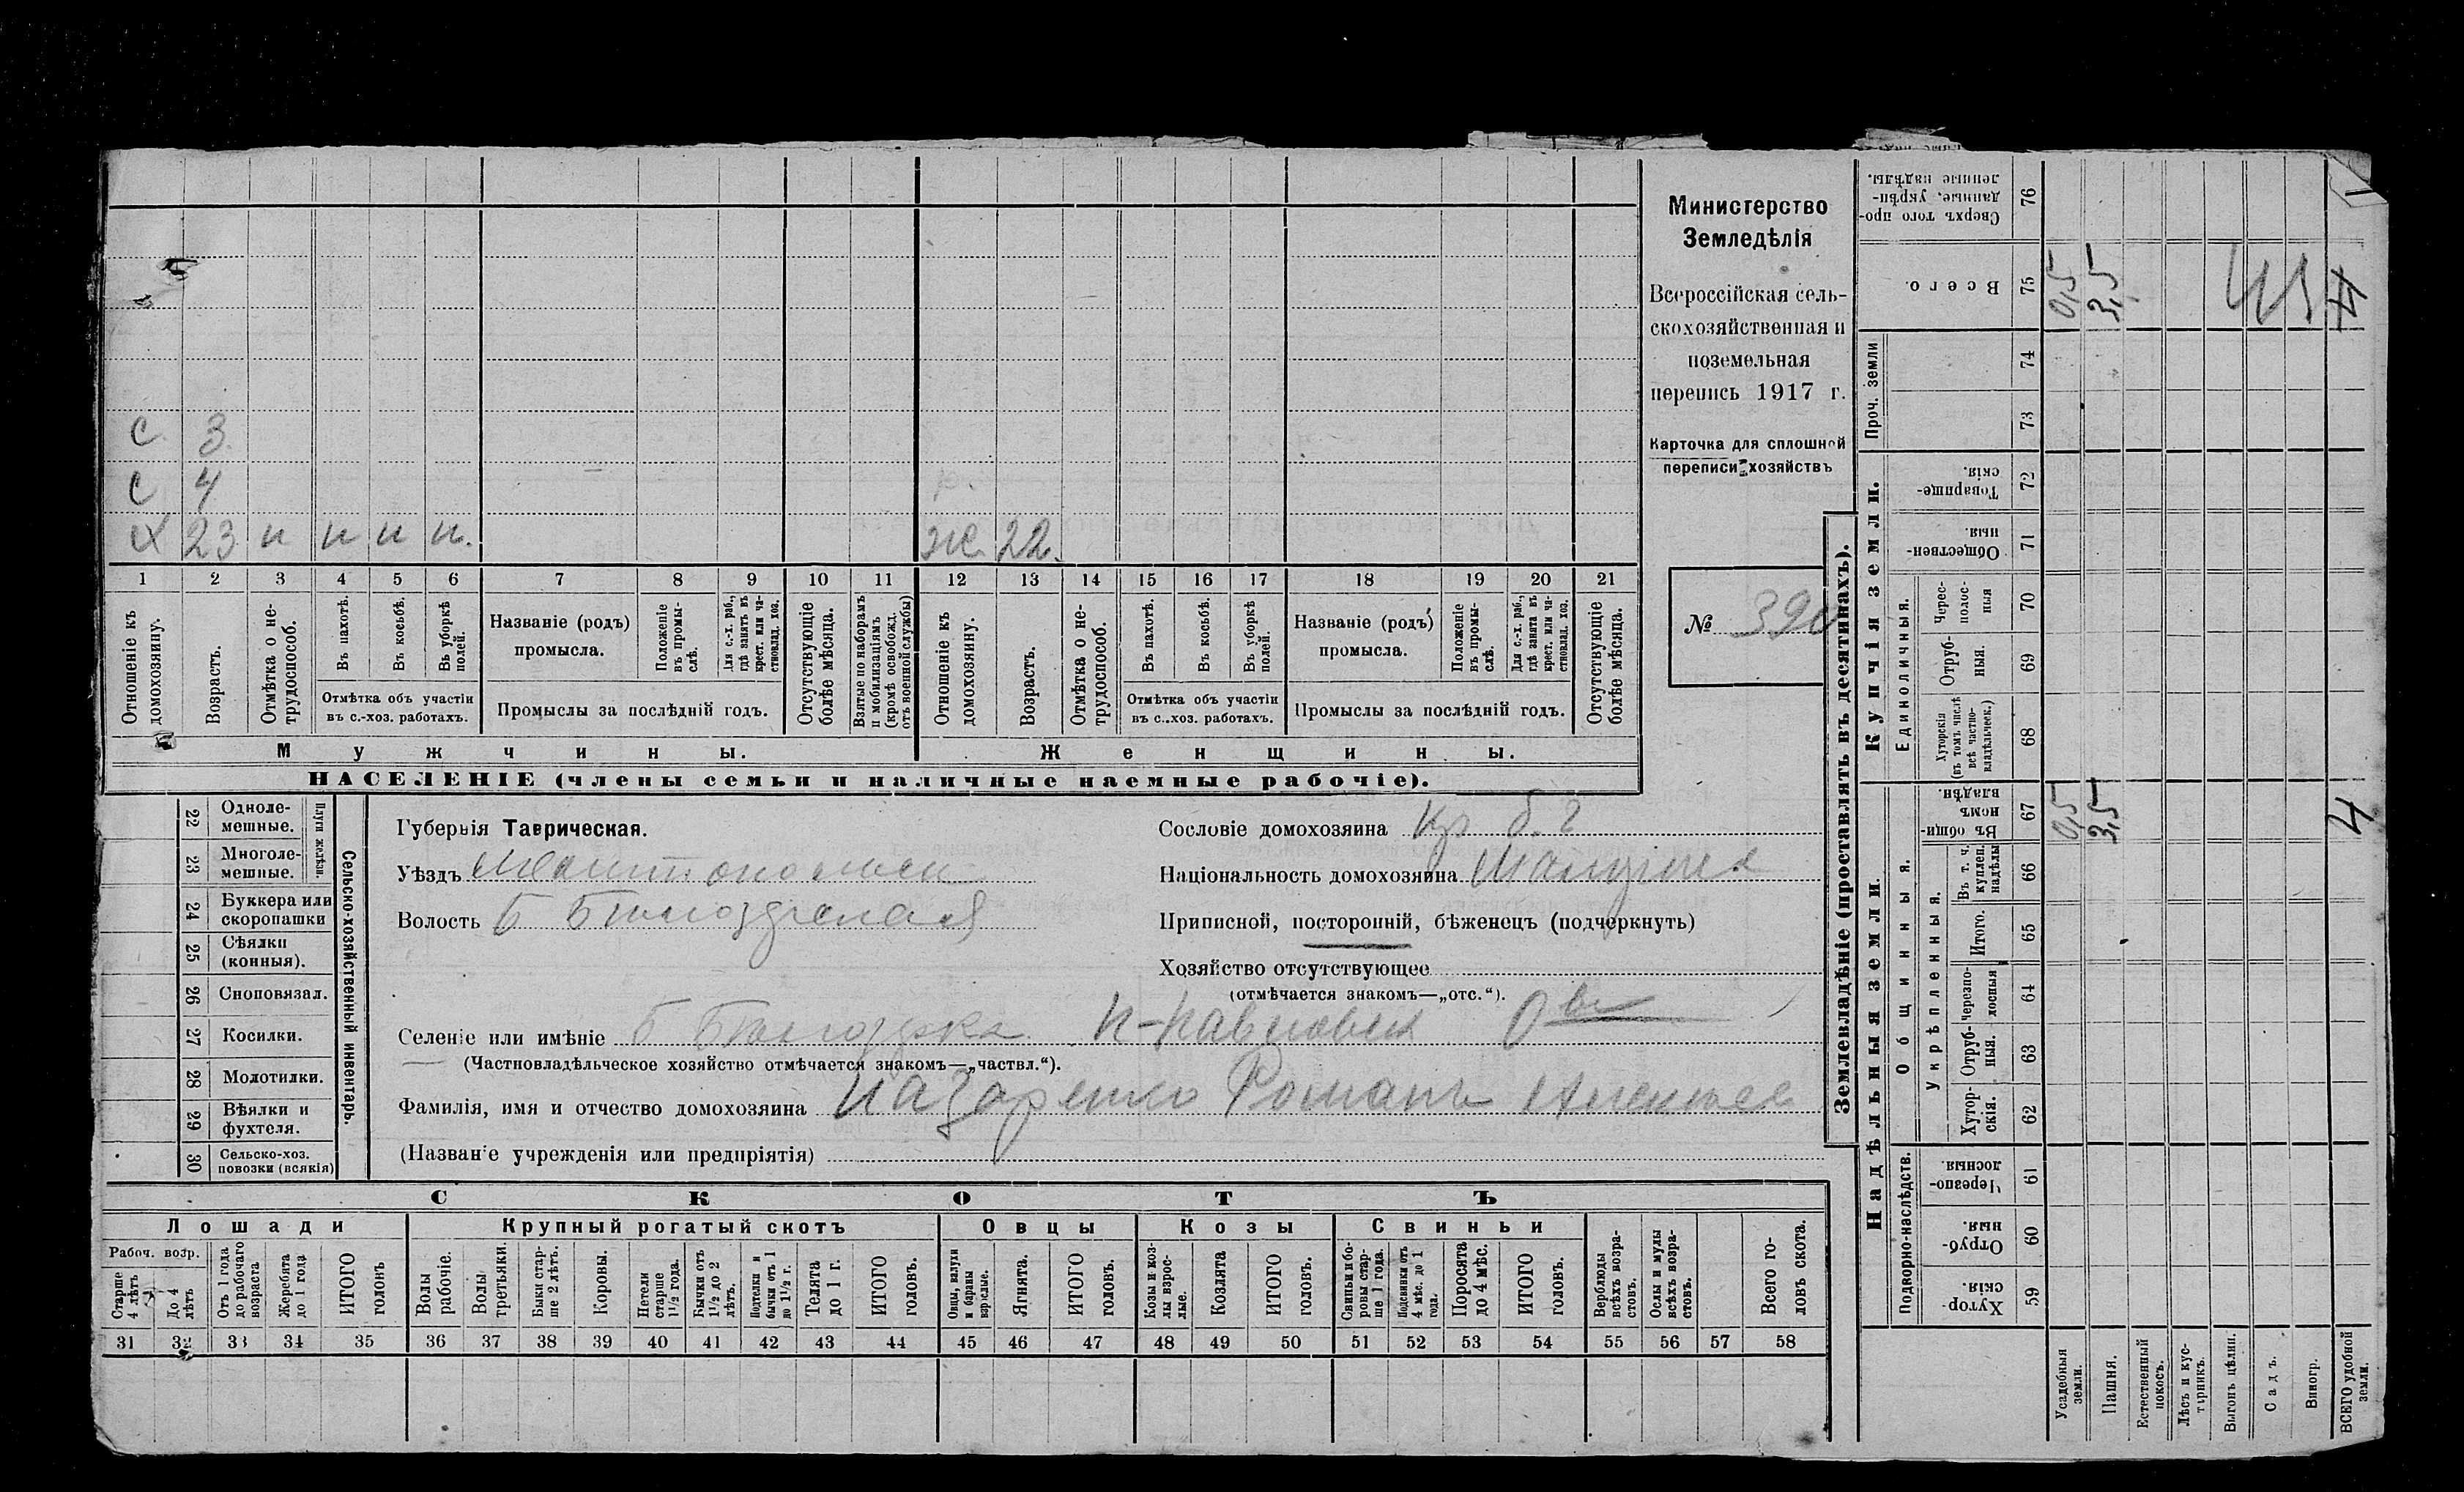 Министерство
Земледѣлія
Всероссійская сель-
скохозяйственная и
поземельная
перепись 1917 г.
Карточка для сплошной
переписи хозяйствъ
№ 390
с 3
с 4
х 23 н н н н. ж. 22.
1 2 3 4 5 6 7 8 9 10 11 12 13 14 15 16 17 18 19 20 21
Отношеніе къ домохозяину.
Возрастъ.
Отмѣтка о не-трудоспособ.
Въ пахотѣ.
Въ косьбѣ.
Въ уборкѣ полей.
Отмѣтка объ участіи въ с.-хоз. работахъ.
Названіе (родъ) промысла.
Положеніе въ промы-слѣ.
Для с.-х. раб., гдѣ занятъ въ крест. или ча-стновлад. хоз.
Промыслы за послѣдній годъ.
Отсутствующіе болѣе мѣсяца.
Взятые по наборамъ и мобилизаціямъ (кромѣ освобожд. отъ военной службы)
Отношеніе къ домохозяину.
Возрастъ.
Отмѣтка о не-трудоспособ.
Въ пахотѣ.
Въ косьбѣ.
Въ уборкѣ полей.
Отмѣтка объ участіи въ с.-хоз. работахъ.
Названіе (родъ) промысла.
Положеніе въ промы-слѣ.
Для с.-х. раб., гдѣ занята въ крест. или ча-стновлад. хоз.
Промыслы за послѣдній годъ.
Отсутствующіе болѣе мѣсяца.
Мужчины. Женщины.
НАСЕЛЕНІЕ (члены семьи и наличные наемные рабочіе).
22 Одноле-мешные.
23 Многоле-мешные.
Плуги желѣзн.
24 Буккера или скоропашки
25 Сѣялки (конныя).
26 Сноповязал.
27 Косилки.
28 Молотилки.
29 Вѣялки и фухтеля.
30 Сельско-хоз. повозки (всякія)
Сельско-хозяйственный инвентарь.
Губернія Таврическая.
Уѣздъ
Волость Б
Селеніе или имѣніе Б
(Частновладѣльческое хозяйство отмѣчается знакомъ—„частвл.“).
Фамилія, имя и отчество домохозяина Назаренко Романъ
(Названіе учрежденія или предпріятія)
Сословіе домохозяина Кр б. г
Національность домохозяина
Приписной, посторонній, бѣженецъ (подчеркнуть)
Хозяйство отсутствующее
(отмѣчается знакомъ—„отс.“).
СКОТЪ
Лошади Крупный рогатый скотъ Овцы Козы Свиньи
Рабоч. возр.
Старше 4 лѣтъ
До 4 лѣтъ
Отъ 1 года до рабочаго возраста
Жеребята до 1 года
ИТОГО головъ
Волы рабочіе.
Волы третьяки.
Быки стар-ше 2 лѣтъ.
Коровы.
Нетели старше 1½ года.
Бычки отъ 1½ до 2 лѣтъ.
Подтелки и бычки отъ 1 до 1½ г.
Телята до 1 г.
ИТОГО головъ.
Овцы, валухи и бараны взрослые.
Ягнята.
ИТОГО головъ.
Козы и коз-лы взрос-лые.
Козлята
ИТОГО головъ.
Свиньи и бо-ровы стар-ше 1 года.
Подсвинки отъ 4 мѣс. до 1 года.
Поросята до 4 мѣс.
ИТОГО головъ.
Верблюды всѣхъ возра-стовъ.
Ослы и мулы всѣхъ возра-стовъ.
Всего го-ловъ скота.
31 32 33 34 35 36 37 38 39 40 41 42 43 44 45 46 47 48 49 50 51 52 53 54 55 56 57 58
Землевладѣніе (проставлять въ десятинахъ).
Сверхъ того про-данные, укрѣп-ленные надѣлы. 76
Всего. 75 0,5 3,5 4
Проч. земли 74 73
Купчія земли.
Товарище-скія. 72
Обществен-ныя. 71
Единоличныя.
Черес-полос-ныя 70
Отруб-ныя. 69
Хуторскія (въ томъ числѣ всѣ частно-владѣльческ.) 68
Надѣльныя земли.
Общинныя.
Въ общи-номъ владѣн. 67 0,5 3,5 4
Укрѣпленныя.
Въ т. ч. куплен. надѣлы 66
Итого. 65
Черезпо-лосныя 64
Отруб-ныя. 63
Хутор-скія. 62
Подворно-наслѣдств.
Черезпо-лосныя. 61
Отруб-ныя. 60
Хутор-скія. 59
Усадебныя земли.
Пашня.
Естественный покосъ.
Лѣсъ и кус-тарникъ.
Выгонъ цѣлин.
Садъ.
Виногр.
ВСЕГО удобной земли.